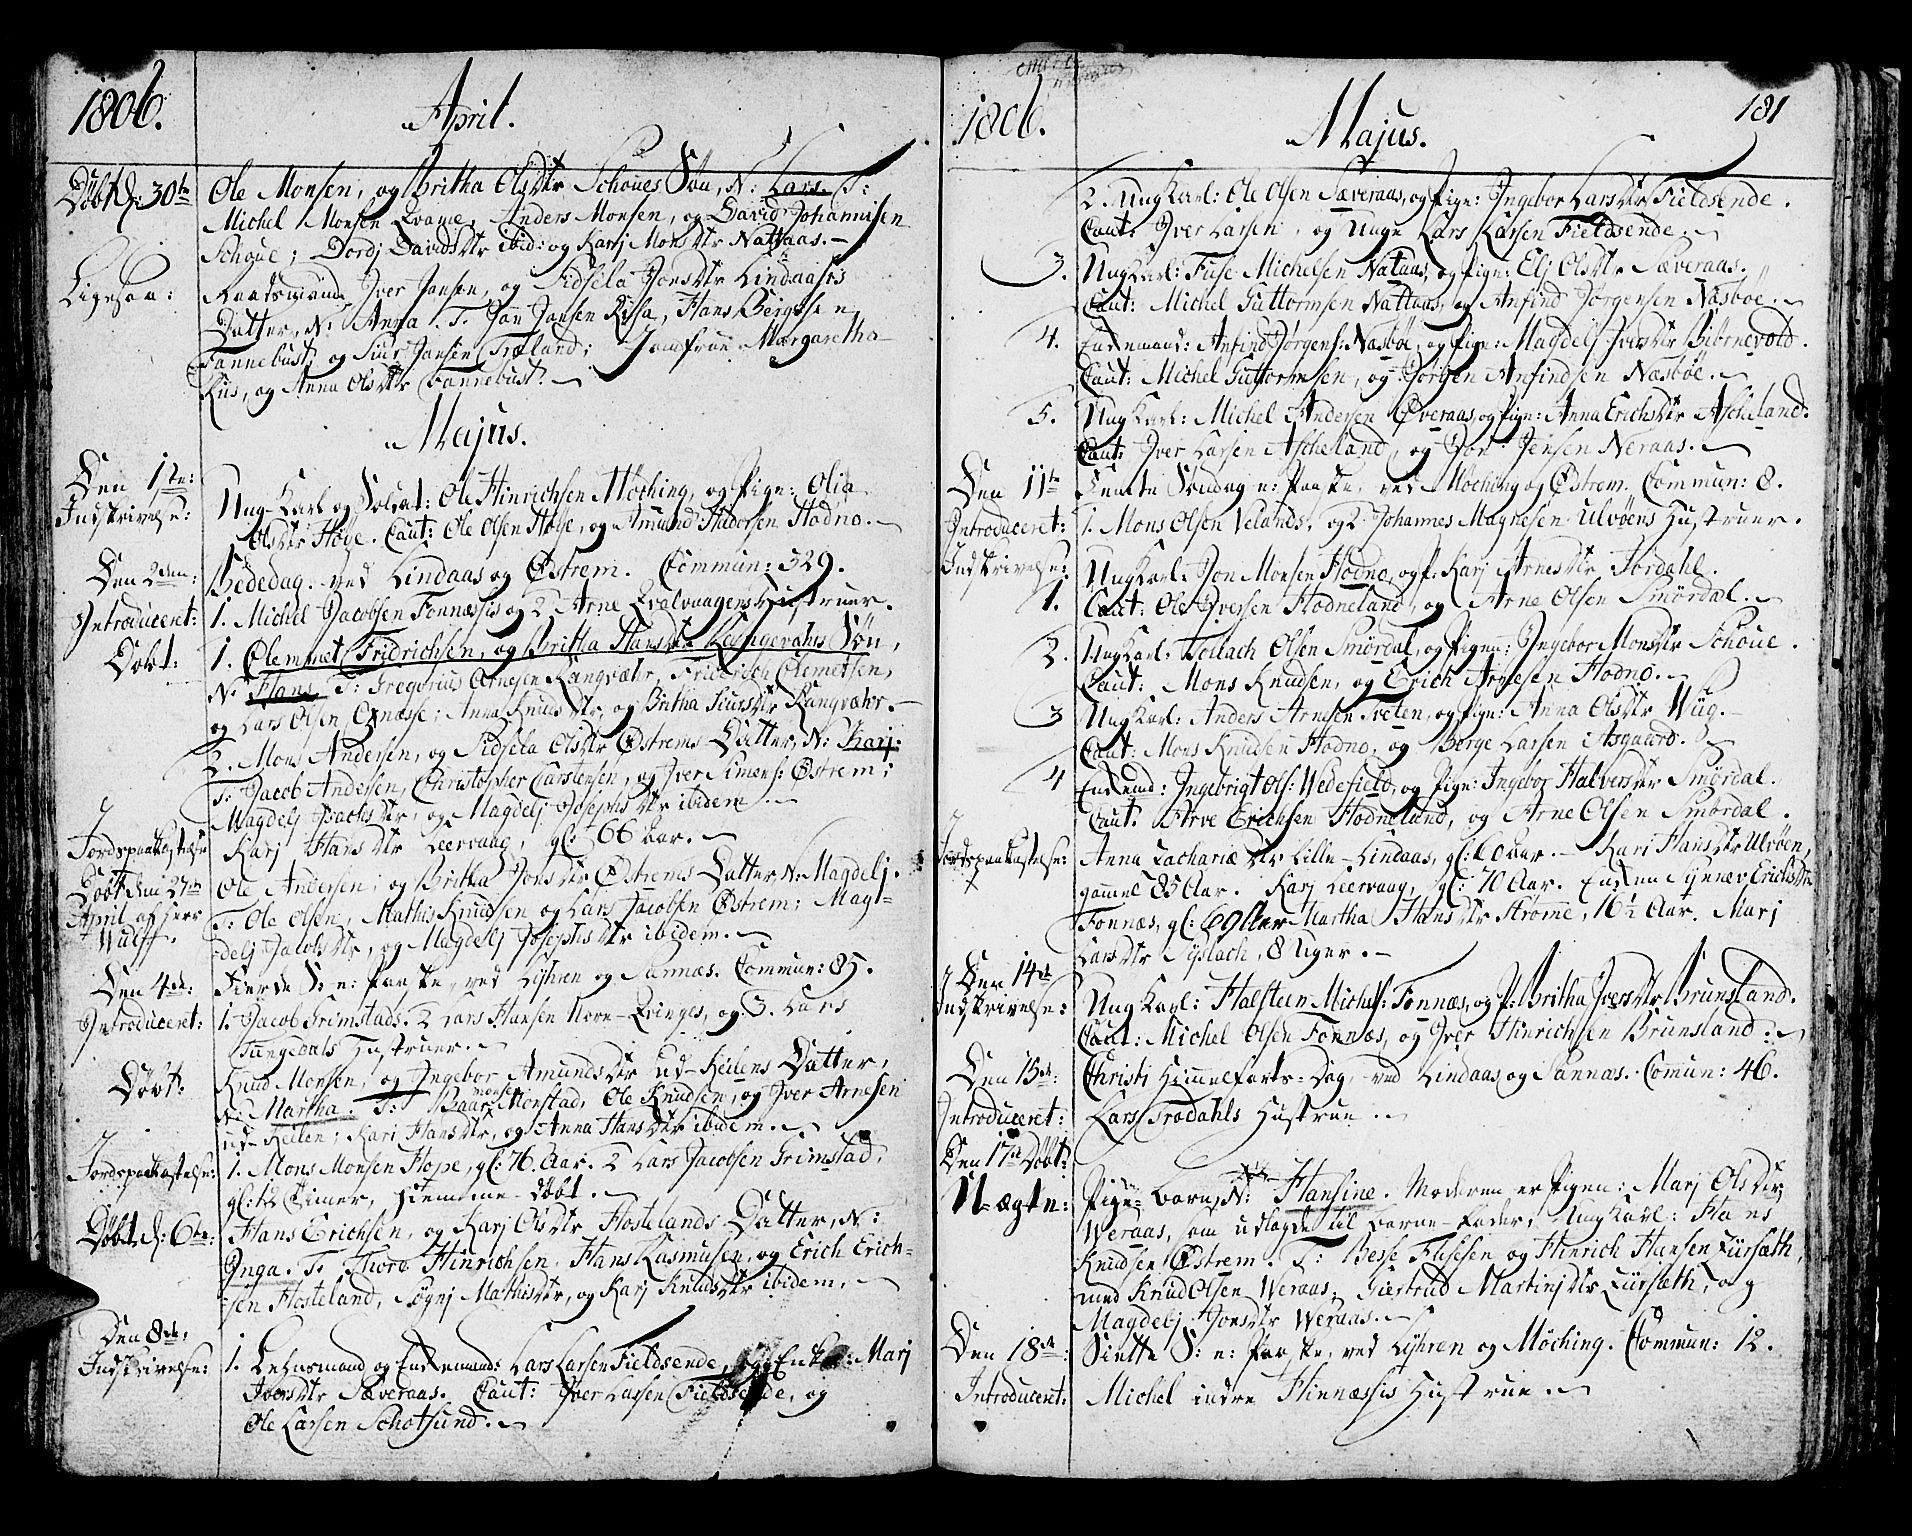 1806.
April.
Døbt d: 30te
Ole Monsen, og Britha Olsdtr Schoues Søn, N: Lars. T:
Michel Monsen Qvame, Anders Monsen, og David Johannisen
Schoue; Dordj Davidsdtr ibid: og Karj Monsdtr Nattaas.
Ligesaa:
Raadsmand Iver Jansen, og Sidsela Jonsdtr Lindaases
Datter, N: Anna T. Jan Jansen Risa, Hans Bergesen
Fannebust, og Siur Jansen Træland; Jomfrue Margaretha
Riis, og Anna Olsdtr Fannebust.
Majus.
Den 1te:
Indskrivelse:
Ung-Karl og Soldat: Ole Hinrichsen Møching, og Pige: Olia
Olsdtr Høye. Caut: Ole Olsen Høye, og Amund Hadorsen Hodno.
Den 2den:
Bededag ved Lindaas og Østrem. Commun: 329.
Introduceret:
1. Michel Jacobsen Fonnæssis og 2 Arne Qvalvaagens Hustruer.
Døbt:
1. Clemmet Fridrichsen, og Britha Hansdtr Kongevahrs Søn,
N: Hans. T: Gregorius Arnesen Rangvahr, Friderich Clemetsen,
og Lars Olsen Ognæsse; Anna Knudsdtr, og Britha Siursdtr Rangvahr.
2. Mons Andersen, og Sidsela Olsdtr Østrems Datter, N: Karj:
T: Jacob Andersen, Christopher Carstensen, og Iver Simens: Østrem;
Magdelj Isachsdtr, og Magdelj Josephsdtr ibidem.
Jordspaakastelse
Karj Hansdtr Leervaag, gl: 66 Aar.
Døbt den 27de
April af Herr
Wulff.
Ole Andersen, og Britha Jonsdtr Østrems Datter, N: Magdelj.
T: Ole Olsen, Mathis Knudsen og Lars Jacobsen Østrem; Mag-
delj Jacobsdtr, og Magdelj Josephsdtr ibidem.
Den 4de:
Fierde S: e: Paaske, ved Lyhren og Sannæs. Commun: 85.
Introduceret:
1. Jacob Grimstads. 2 Lars Hansen Nore-Qvinges, og 3. Lars
Tangedals Hustruer.
Døbt:
Knud Monsen, og Ingebor Amundsdtr Ud-Keilens Datter,
N: Martha. T: Baar Monsen Monstad, Ole Knudsen, og Iver Arnesen
ude Keilen; Kari Hansdtr, og Anna Hansdtr ibidem.
Jordspaakastelse:
1. Mons Monsen Hope, gl: 76 Aar. 2 Lars Jacobsen Grimstad,
gl: 12 Timer, Hiemme-døbt.
Døbt d: 6te:
Hans Erichsen, og Karj Olsdtr Hostelands Datter, N:
Inga. T. Thore Hinrichsen, Hans Rasmusen, og Erich Erich-
sen Hosteland, Sygnj Mathisdtr, og Karj Knudsdtr ibidem.
Den 8de,
Indskrivelse:
1. Lehnsmand og Enkemand: Lars Larsen Fieldsende, og Enke: Marj
Iversdtr Sæveraas. Caut: Iver Larsen Fieldsende, og
Ole Larsen Schotsund.
1806.
Majus.
181
2. Ung Karl: Ole Olsen Sæveraas, og Pige: Ingebor Larsdtr Fieldsende.
Caut: Iver Larsen, og Unge Lars Larsen Fieldsende.
3. Ung Karl: Fuse Michelsen Nataas, og Pige: Elj Olsdtr Sæveraas.
Caut: Michel Guttormsen Nattaas, og Anfind Jørgensen Næsbøe.
4. Enkemand: Anfind Jørgens: Næsbøe, og Pige: Magdelj Iversdtr Biørnevold.
Caut: Michel Guttormsen, og Jørgen Anfindsen Næsbøe.
5. Ung Karl: Michel Andersen Øveraas, og Pige: Anna Erichsdtr Ascheland.
Caut: Iver Larsen Ascheland, og Jon Jensen Neraas.
Den 11te
Femte Søndag e: Paaske, ved Møching og Østrem. Commun: 8.
Introduceret:
1. Mons Olsen Velands, og 2. Johannes Magnesen Ulvøens Hustruer.
Indskrivelse:
1.
Ung Karl: Jon Monsen Hodno, og P: Karj Arnesdtr Førdahl.
Caut: Ole Iversen Hodneland, og Arne Olsen Smørdal.
2.
Ung Karl: Tollach Olsen Smørdal, og Pigen: Ingebor Monsdtr Schoue.
Caut: Mons Knudsen, og Erich Arnesen Hodno.
3
Ung Karl: Anders Arnesen Tveten, og Pige: Anna Olsdtr Wiig.
Caut: Mons Knudsen Hodno, og Børge Larsen Asgaard.
4
Enkemd: Ingebrigt Ols: Wedefield, og Pige: Ingebor Halversdtr Smørdal.
Caut. Arve Erichsen Hodneland, og Arne Olsen Smørdal.
Jordspaakastelse:
Anna Zachariædtr Lille-Lindaas, gl: 60 Aar. Kari Hansdtr Ulvøen,
gammel 85 Aar. Karj Leervaag, gl: 70 Aar. Enken Gjenær Erichsdtr
Fonnæs, gl: 69 Aar Martha Hansdtr Strømme, 16½ Aar. Marj
Larsdtr Syslach, 8 Uger.
Den 14de
Indskrivelse:
Ung Karl: Halsteen Michels: Fonnæs, og P: Britha Iversdtr Brunsland.
Caut: Michel Olsen Fonnæs, og Iver Hinrichsen Brunsland.
Den 15de:
Christi Himmelfarts-Dag, ved Lindaas og Sannæs. Comun: 46.
Introduceret:
Lars Trodahls Hustrue.
Den 17de Døbt:
Uægte:
Pige-Barn, N: Hansine. Moderen er Pigen: Marj Olsdtr
Weraas, som udlagde til Barne-Fader, Ung Karl: Hans
Knudsen Østrem. T: Besse Fusesen og Hinrich Hansen Fürsæth,
med Knud Olsen Weraas, Giertrud Martinjdtr Fürsæth, og
Magdelj Jonsdtr Weraas.
Den 18de:
Siette S: e: Paaske, ved Lyhren og Møching. Commun: 12.
Introduceret:
Michel indre Hinnæssis Hustrue.